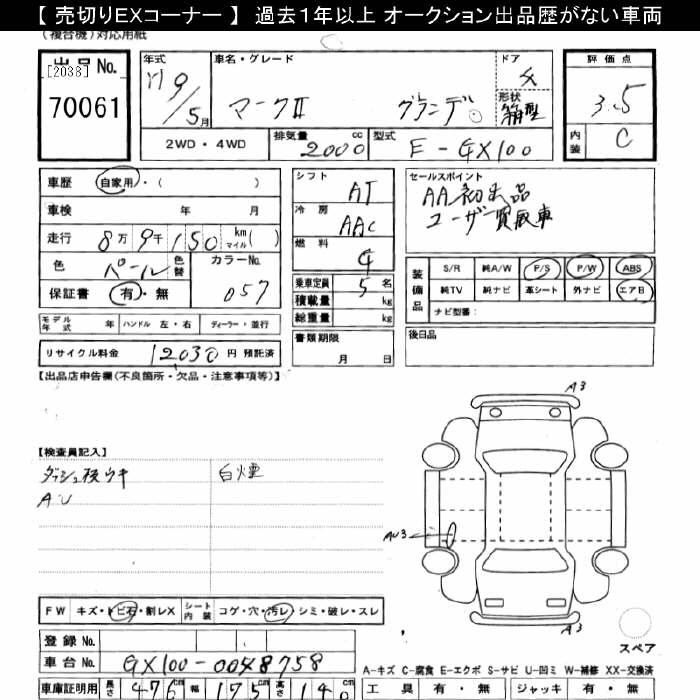 【 売切りEXコーナー 】 過去1年以上 オークション出品歴がない車両
(複合機)対応用紙
出品No.
[2038]
70061
年式
H9/5月
車名・グレード
マークII グランデ
ドア
4
形状
箱型
評価点
3.5
内装
C
2WD・4WD
排気量 2000 cc
型式 E-GX100
車歴 自家用・( )
車検 年 月
走行 8万9千150 km マイル( )
色 パール 色替
カラーNo. 057
保証書 有・無
シフト AT
冷房 AAC
燃料 G
乗車定員 5 名
積載量 kg
総重量 kg
書類期限
月 日
セールスポイント
AA初出品
ユーザー買取車
装備品
S/R 純A/W P/S P/W ABS
純TV 純ナビ 革シート 外ナビ エアB
ナビ型番:
後日品
モデル年式 年 ハンドル 左・右 ディーラー・並行
リサイクル料金 12030 円 預託済
【出品店申告欄(不良箇所・欠品・注意事項等)】
【検査員記入】
ダッシュ板ウキ 白煙
A.U
A3
AU3
A3
FW キズ・トビ石・割レX シート内装 コゲ・穴・汚レ・シミ・破レ・スレ
登録No.
車台No. GX100-0048758
スペア
A-キズ C-腐食 E-エクボ S-サビ U-凹ミ W-補修 XX-交換済
車庫証明用 長さ 476cm 幅 175cm 高さ 140cm
工具 有・無 ジャッキ 有・無